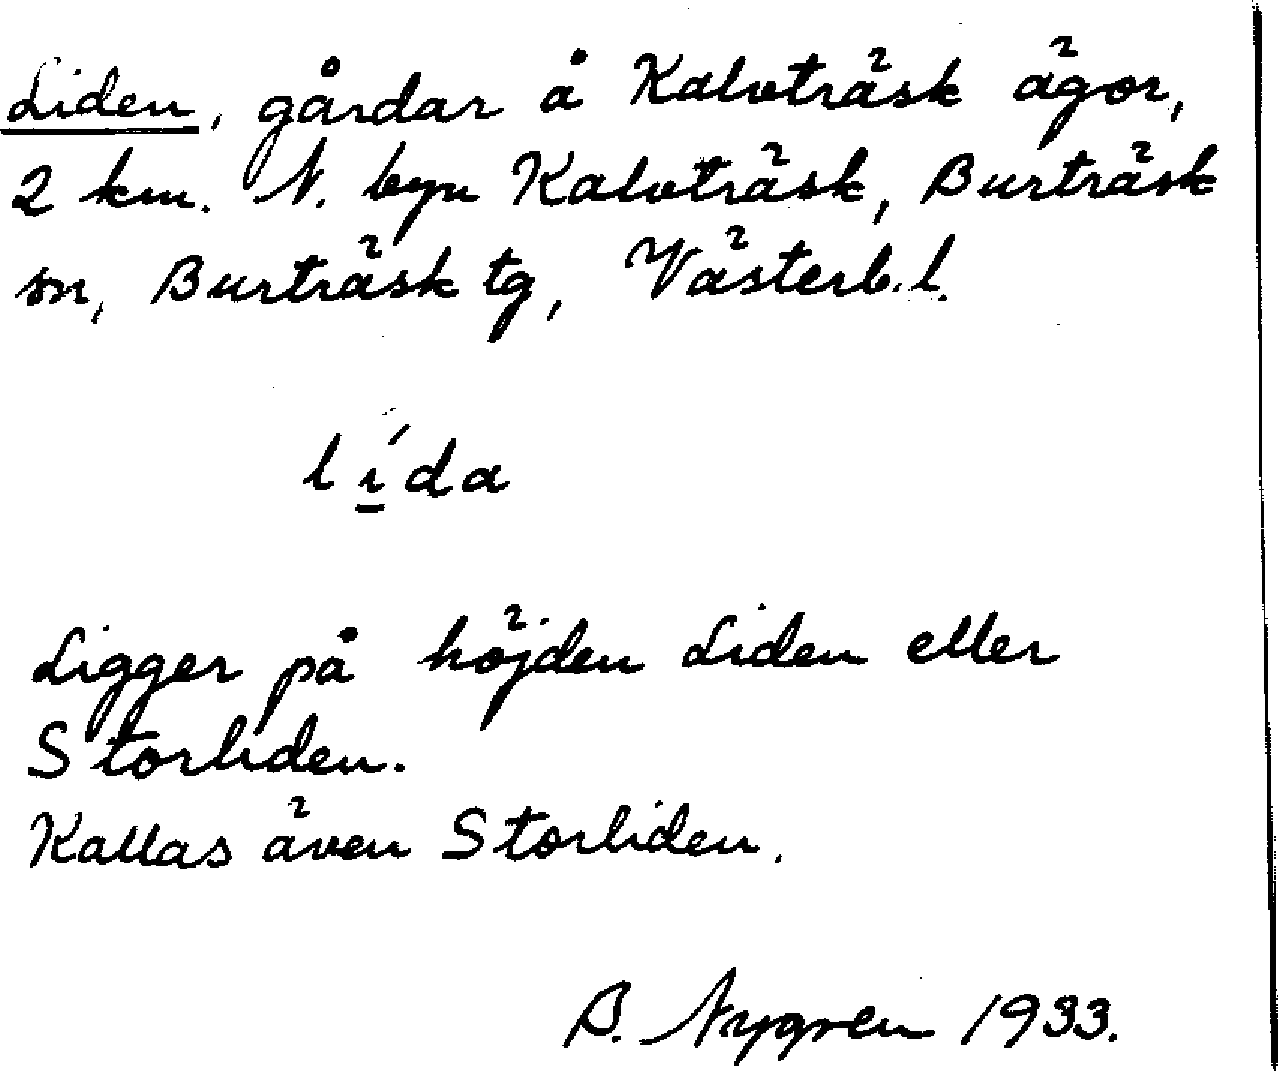 Liden, gårdar å Kalvträsk ägor,
2 km. N. byn Kalvträsk, Burträsk
sn, Burträsk tg, Västerb.l.
lída
Ligger på höjden Liden eller
Storliden.
Kallas även Storliden.
B. Nygren 1933.